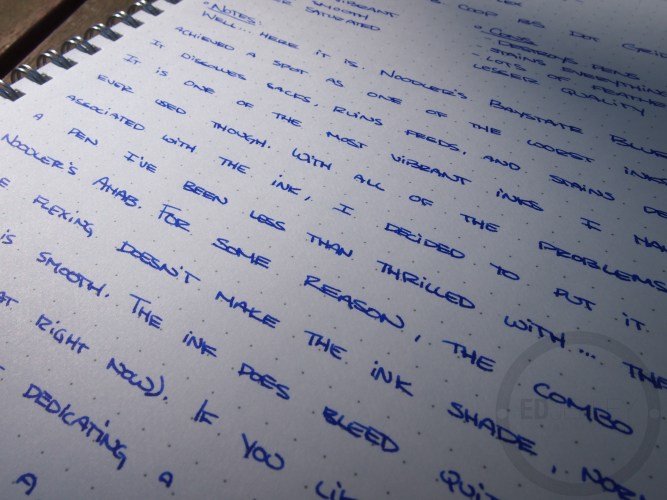 VIBRANT
SMOOTH
SATURATED
COOP
DOT GRID
NOTES:
CONS:
- DESTROYS PENS
- STAINS EVERYTHING
- LOTS OF FEATHE
LESSER QUALITY
WELL... HERE IT IS. NOODLER'S BAYSTATE BLUE
ACHIEVED A SPOT AS ONE OF THE WORST INKS
IT DISSOLVES SACKS, RUINS FEEDS, AND STAINS
IT IS ONE OF THE MOST VIBRANT INKS I HAV
EVER USED THOUGH. WITH ALL OF THE PROBLEMS
ASSOCIATED WITH THE INK, I DECIDED TO PUT IT
A PEN I'VE BEEN LESS THAN THRILLED WITH... THE
NOODLER'S AHAB. FOR SOME REASON, THE COMBO
FLEXING DOESN'T MAKE THE INK SHADE, NOR
IS SMOOTH. THE INK DOES BLEED QUI
AT RIGHT NOW). IF YOU LIK
DEDICATING A
A
ED